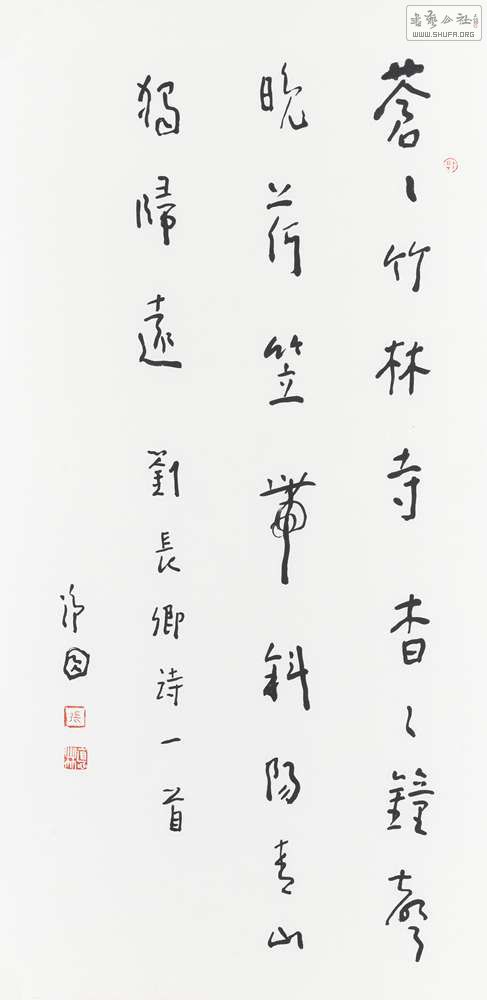 蒼〻竹林寺杳〻鐘聲
晚荷笠帶斜陽青山
獨歸遠
劉長卿詩一首
書藝公社
WWW.SHUFA.ORG
張